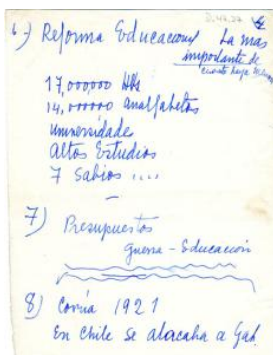 6) Reforma Educacional La mas
importante de
cuanto haya
17,000000 Hbs
14,000000 analfabetos
Universidades
Altos Estudios
7 Sabios ....
7) Presupuestos
Guerra - Educación
8) Corría 1921
En Chile se atacaba a Gab